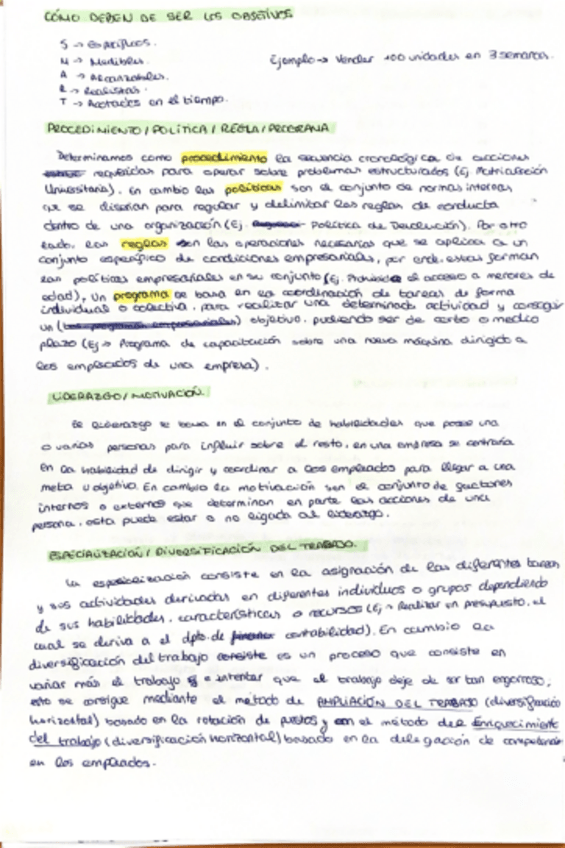 CÓMO DEBEN DE SER LOS OBJETIVOS
S → Específicos.
M → Medibles.
Ejemplo → Vender 100 unidades en 3 semanas.
A → Alcanzables.
R → Realistas.
T → Acotados en el tiempo.
PROCEDIMIENTO / POLÍTICA / REGLA / PROGRAMA
Determinamos como procedimiento la secuencia cronológica de acciones
requeridas para operar sobre problemas estructurados (Ej. Matriculación
Universitaria). En cambio las políticas son el conjunto de normas internas
que se diseñan para regular y delimitar las reglas de conducta
dentro de una organización (Ej. Política de Devolución). Por otro
lado, las reglas son las operaciones necesarias que se aplica a un
conjunto específico de condiciones empresariales, por ende estas forman
las políticas empresariales en su conjunto (Ej. Prohibido el acceso a menores de
edad). Un programa se basa en la coordinación de tareas de forma
individual o colectiva, para realizar una determinada actividad y conseguir
un (los programas empresariales) objetivo, pudiendo ser de corto o medio
plazo (Ej → Programa de capacitación sobre una nueva máquina dirigido a
los empleados de una empresa).
LIDERAZGO / MOTIVACIÓN.
El liderazgo se basa en el conjunto de habilidades que posee una
o varias personas para influir sobre el resto, en una empresa se centraría
en la habilidad de dirigir y coordinar a los empleados para llegar a una
meta u objetivo. En cambio la motivación son el conjunto de factores
internos o externos que determinan en parte las acciones de una
persona, esta puede estar o no ligada al liderazgo.
ESPECIALIZACIÓN / DIVERSIFICACIÓN DEL TRABAJO.
La especialización consiste en la asignación de las diferentes tareas
y sus actividades derivadas en diferentes individuos o grupos dependiendo
de sus habilidades, características o recursos (Ej → Realizar en presupuesto, el
cual se deriva a el dpto. de contabilidad). En cambio la
diversificación del trabajo consiste es un proceso que consiste en
variar más el trabajo e intentar que el trabajo deje de ser tan engorroso,
esto se consigue mediante el método de AMPLIACIÓN DEL TRABAJO (diversificación
horizontal) basado en la rotación de puestos y con el método del Enriquecimiento
del trabajo (diversificación horizontal) basado en la delegación de competencias
en los empleados.